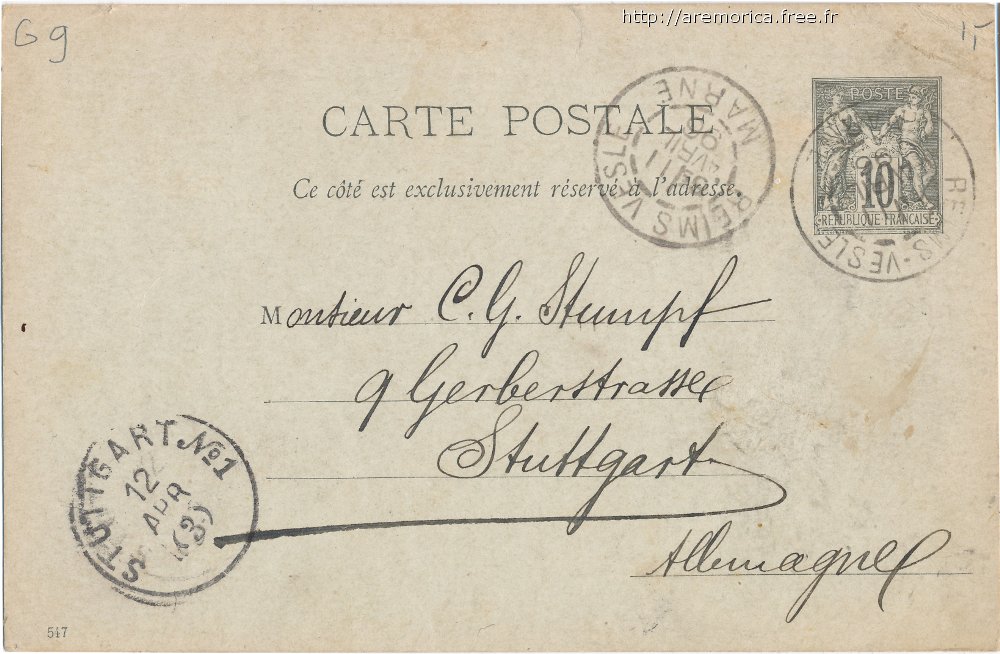 http://aremorica.free.fr
G 9
CARTE POSTALE
Ce côté est exclusivement réservé à l'adresse.
POSTE
10
REPUBLIQUE FRANÇAISE
REIMS VESLE
MARNE
AVRIL
REIMS-VESLE
Monsieur C. G. Stumpf
9 Gerberstrasse
Stuttgart
Allemagne
STUTTGART No1
12
APR
547